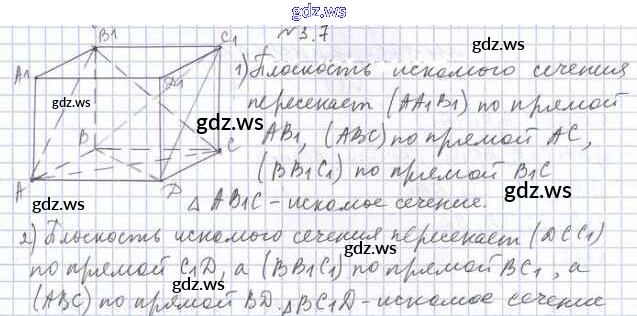 gdz.ws
B1
C1
№3.7
gdz.ws
A1
D1
1) Плоскость искомого сечения
gdz.ws
gdz.ws
пересекает (AA1B1) по прямой
gdz.ws
B
C
AB1, (ABC) по прямой AC,
A
D
(BB1C1) по прямой B1C
gdz.ws
gdz.ws
gdz.ws
△AB1C – искомое сечение.
2) Плоскость искомого сечения пересекает (DCC1)
по прямой C1D, а (BB1C1) по прямой BC1, а
gdz.ws
gdz.ws
(ABC) по прямой BD. △BC1D – искомое сечение
gdz.ws